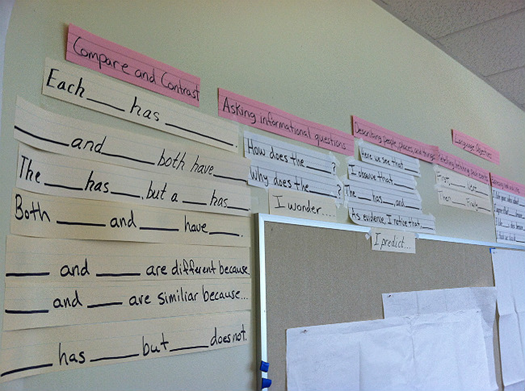 Compare and Contrast
Each ____ has ____.
____ and ____ both have ____.
The ____ has ____, but a ____ has ____.
Both ____ and ____ have ____.
____ and ____ are different because
____ and ____ are similiar because...
____ has ____ but ____ does not.
Asking informational questions
How does the ____?
Why does the ____?
I wonder....
Describing people, places, and things
Here we see that ____
I observe that ____
The ____ has ____ and ____
As evidence, I notice that ____
I predict...
Language Objectives
First,
Then